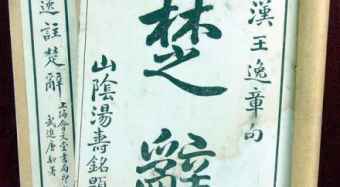 漢王逸章句
楚辭
山陰湯壽銘題
逸註楚辭
上海會文堂書局印
武進唐駝署